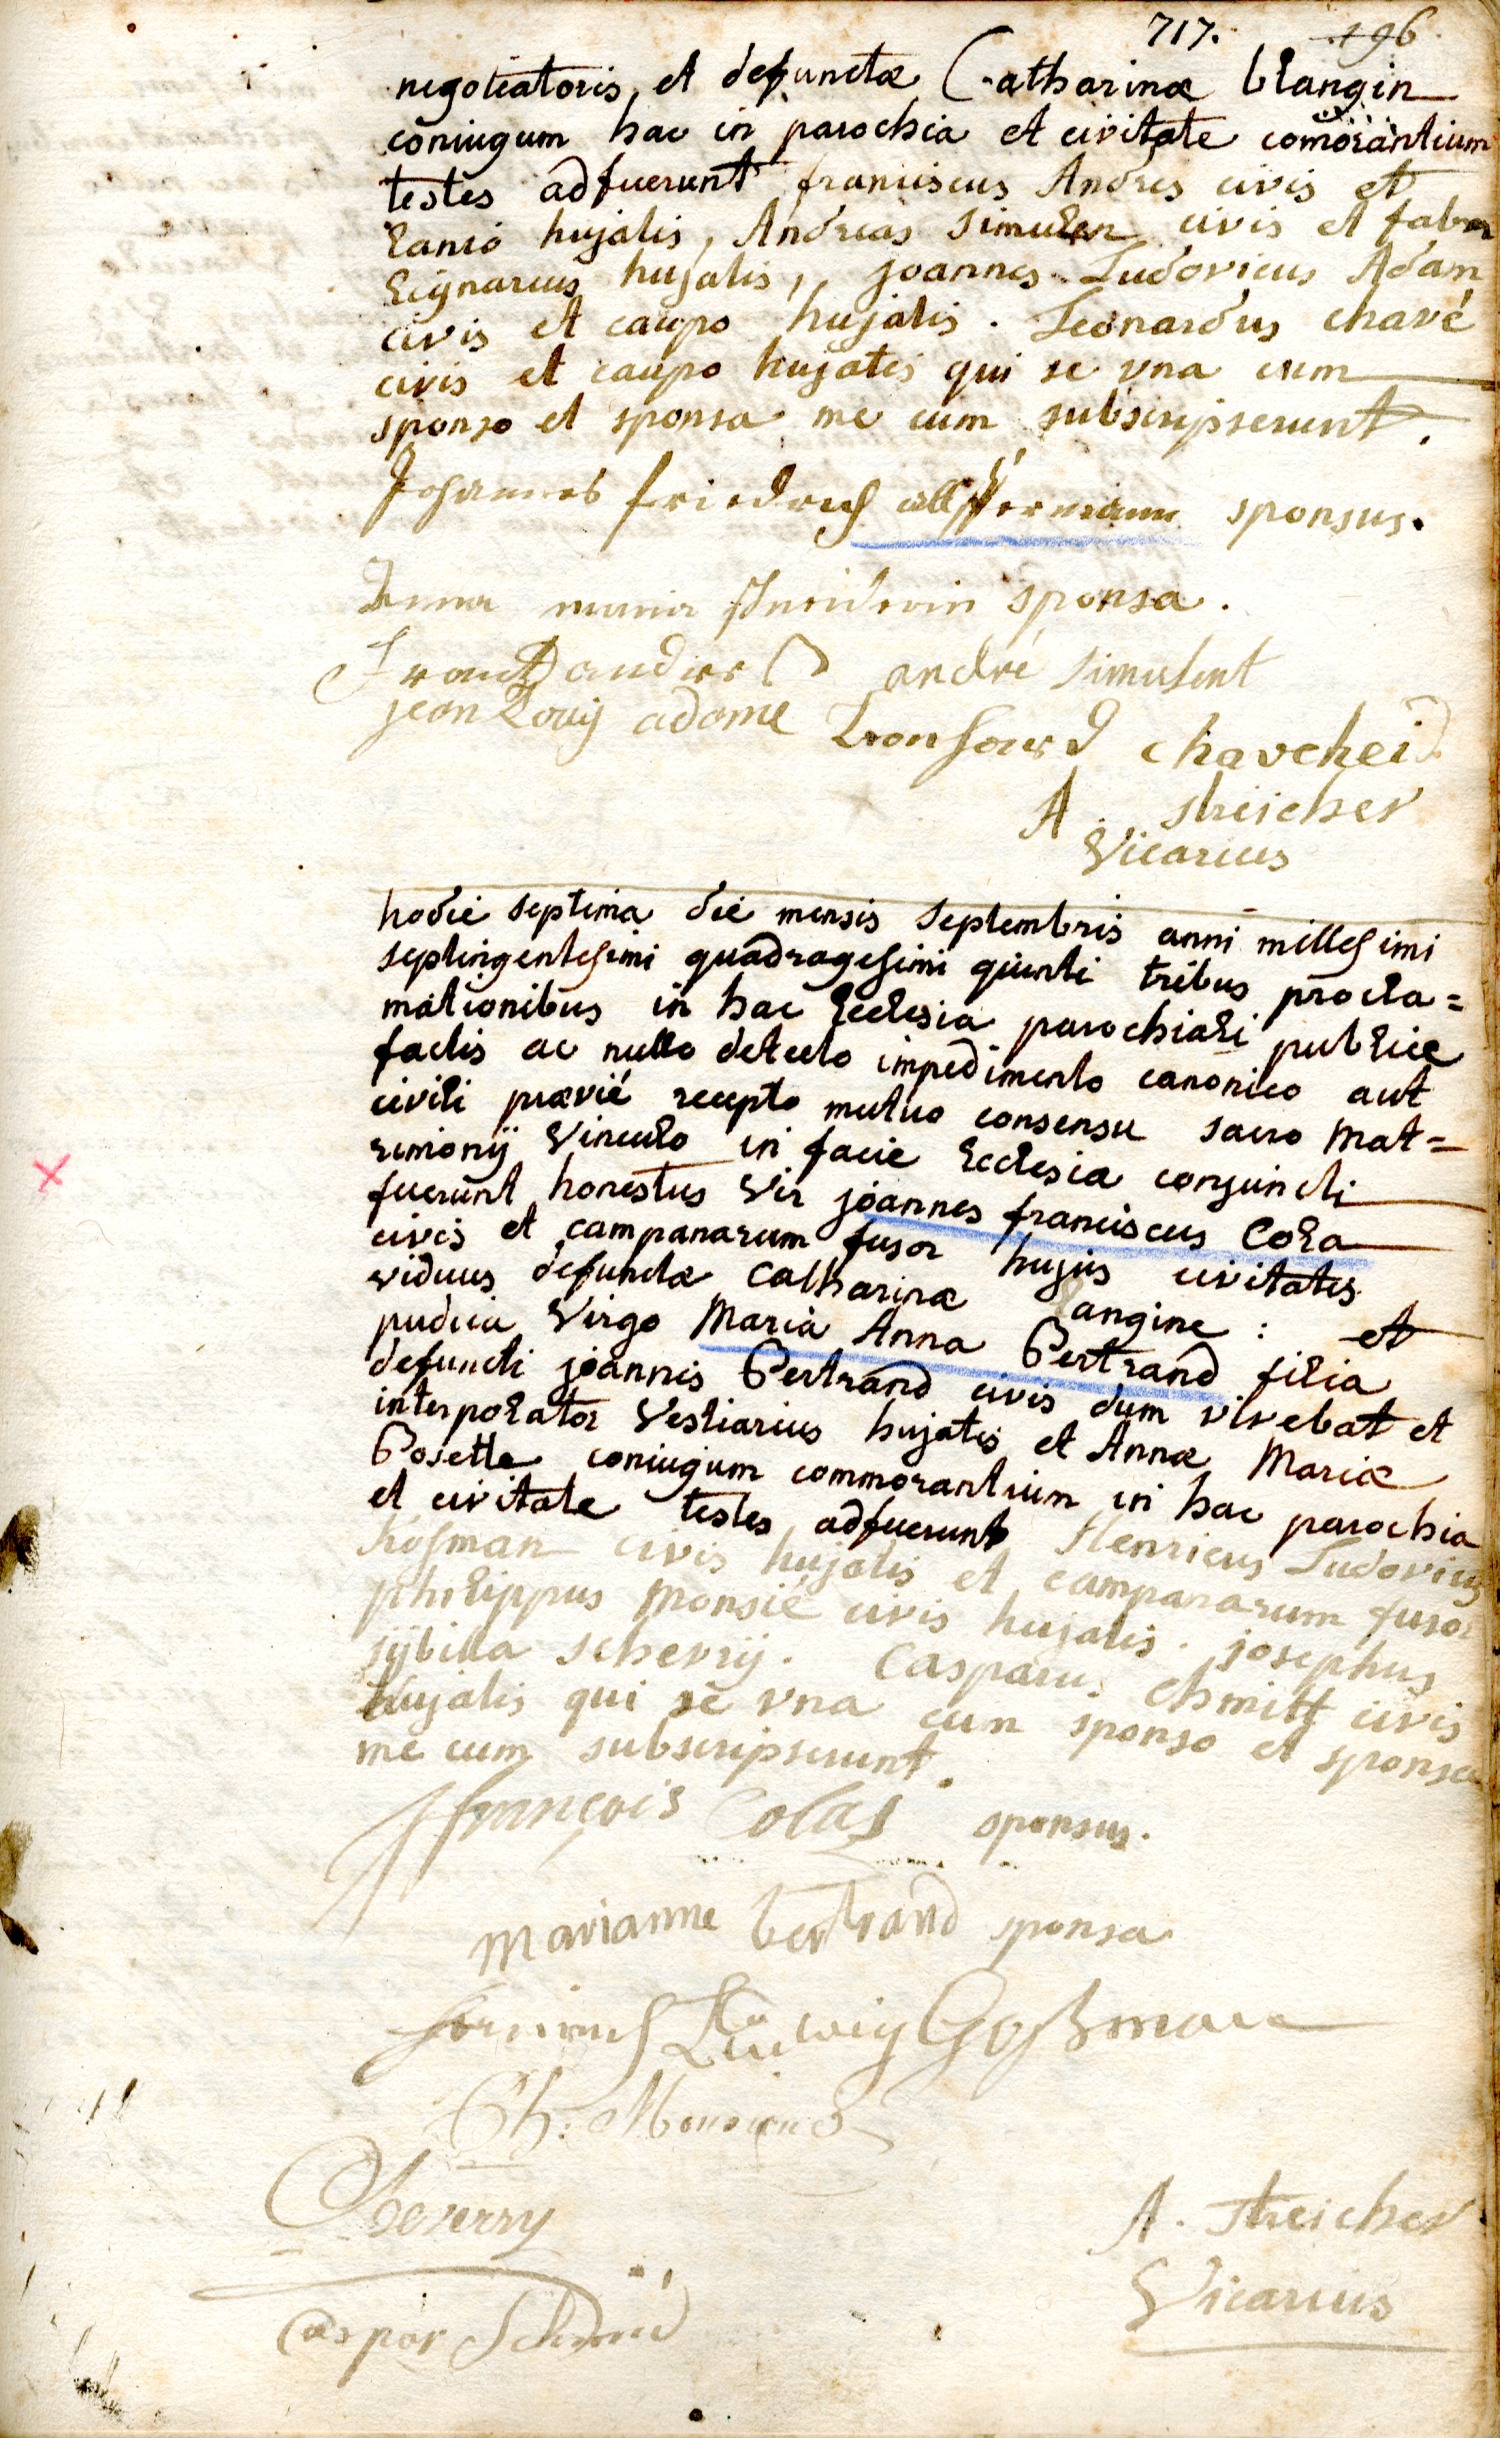 717. 196.
negotiatoris, et defunctæ Catharinæ blangin
coniugum hac in parochia et civitate comorantium
testes adfuerunt franciscus Andres civis et
lanio hujatis, Andreas simulen civis et faber
lignarius hujatis, joannes Ludovicus Adam
civis et caupo hujatis. Leonardus chavé
civis et caupo hujatis qui se vna cum
sponso et sponsa me cum subscripserunt.
Johannes friedrich sponsus.
Anna maria sponsa.
andré simulent
jean Louij adame
Leonhard chavehei
A. streicher
Vicarius
hodie septima die mensis septembris anni millesimi
septingentesimi quadragesimi quinti tribus procla=
mationibus in hac Ecclesia parochiali publice
factis ac nullo detecto impedimento canonico aut
civili prævié recepto mutuo consensu sacro mat=
rimonij Vinculo in facie Ecclesia conjuncti
fuerunt honestus Vir joannes franciscus Cola
civis et campanarum fusor hujus civitatis
viduus defunctæ Catharinæ Langine : et
pudica Virgo Maria Anna Bertrand filia
defuncti joannis Bertrand civis dum vivebat et
interpolator Vestiarius hujatis et Annæ Mariæ
Posette coniugum commorantium in hac parochia
et civitate testes adfuerunt Henricus Ludovicus
hosman civis hujatis et campanarum fusor
philippus Monsié civis hujatis. josephus
sijbilla scheverij. Casparu. chmitt civis
hujatis qui se vna cum sponso et sponsa
me cum subscripserunt.
françois Colas sponsus.
marianne bertrand sponsa
Heinrich Ludwig Goßman
Ph: Monsieus
Cheverry
A. Streicher
Vicarius
Caspar Schmid